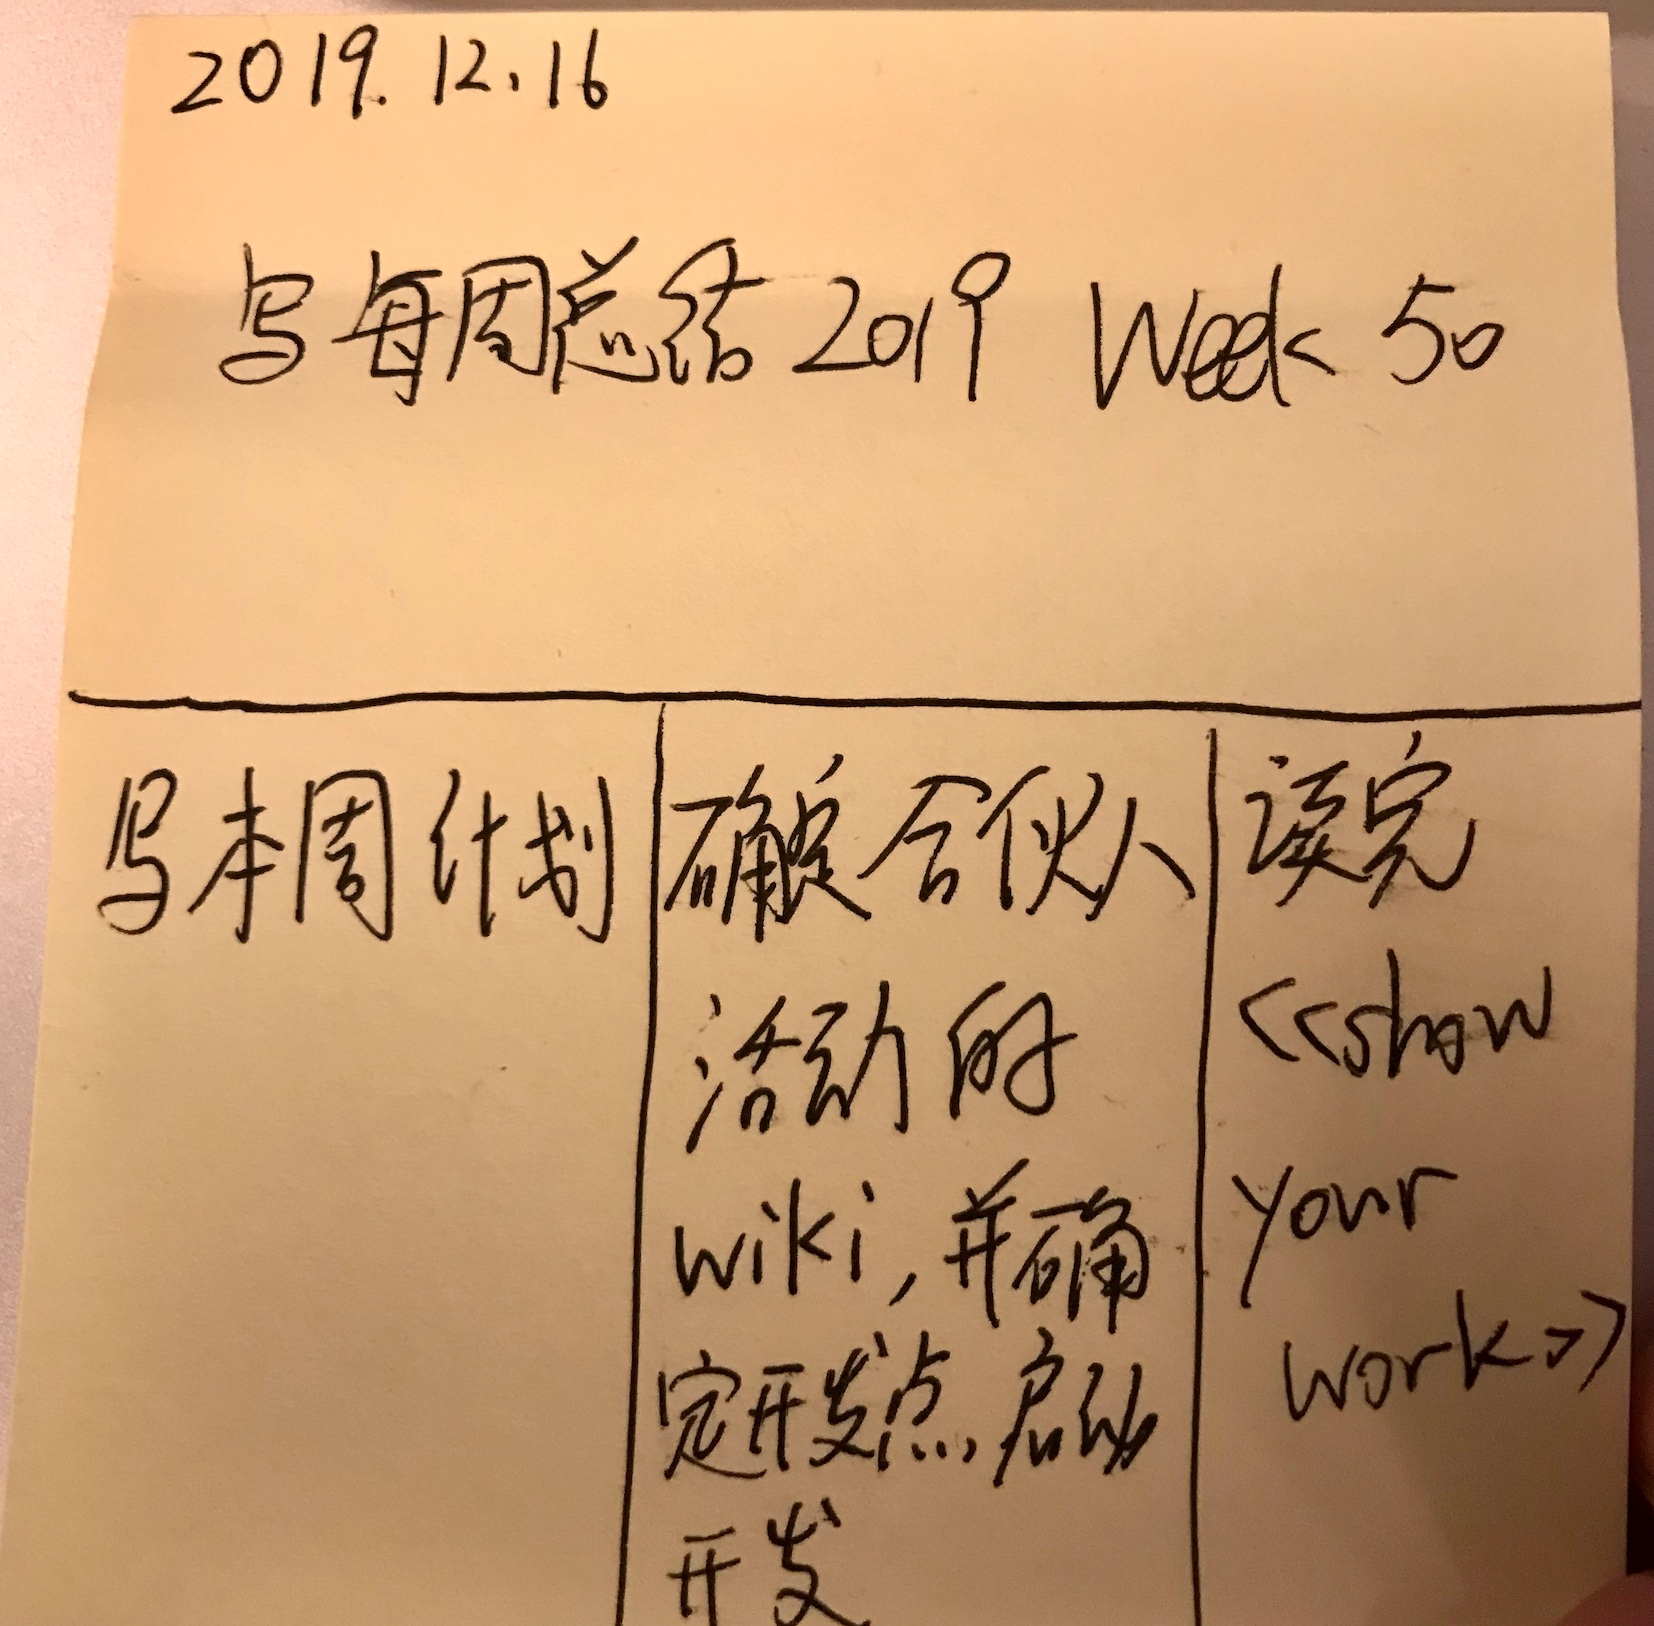 2019.12.16
写每周总结 2019 Week 50
写本周计划
确定合伙人
活动的
wiki,并确
定开发点,启动
开发
读完
<<show
your
work>>